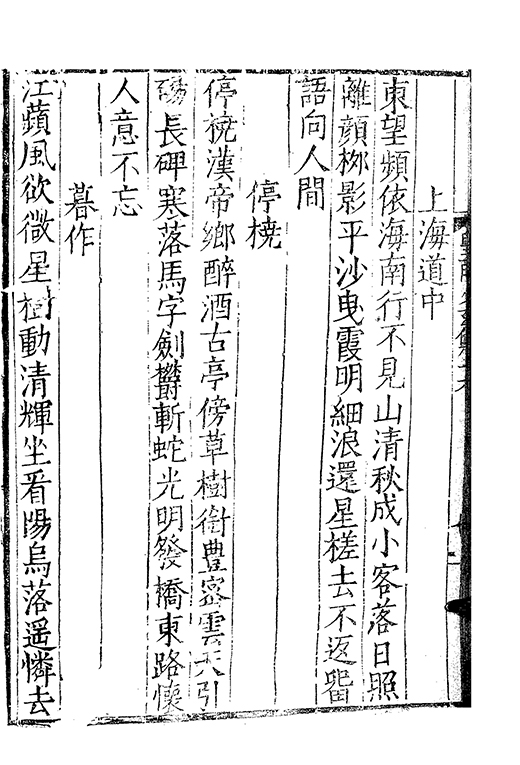 上海道中
東望頻依海南行不見山清秋成小客落日照
離顏栁影平沙曳霞明細浪還星槎去不返畱
語向人間
停橈
停橈漢帝鄉醉酒古亭傍草樹銜豐密雲天引
碭長碑寒落馬字劍欝斬蛇光明發橋東路懷
人意不忘
暮作
江蘋風欲微星樹動清輝坐看陽烏落遥憐去